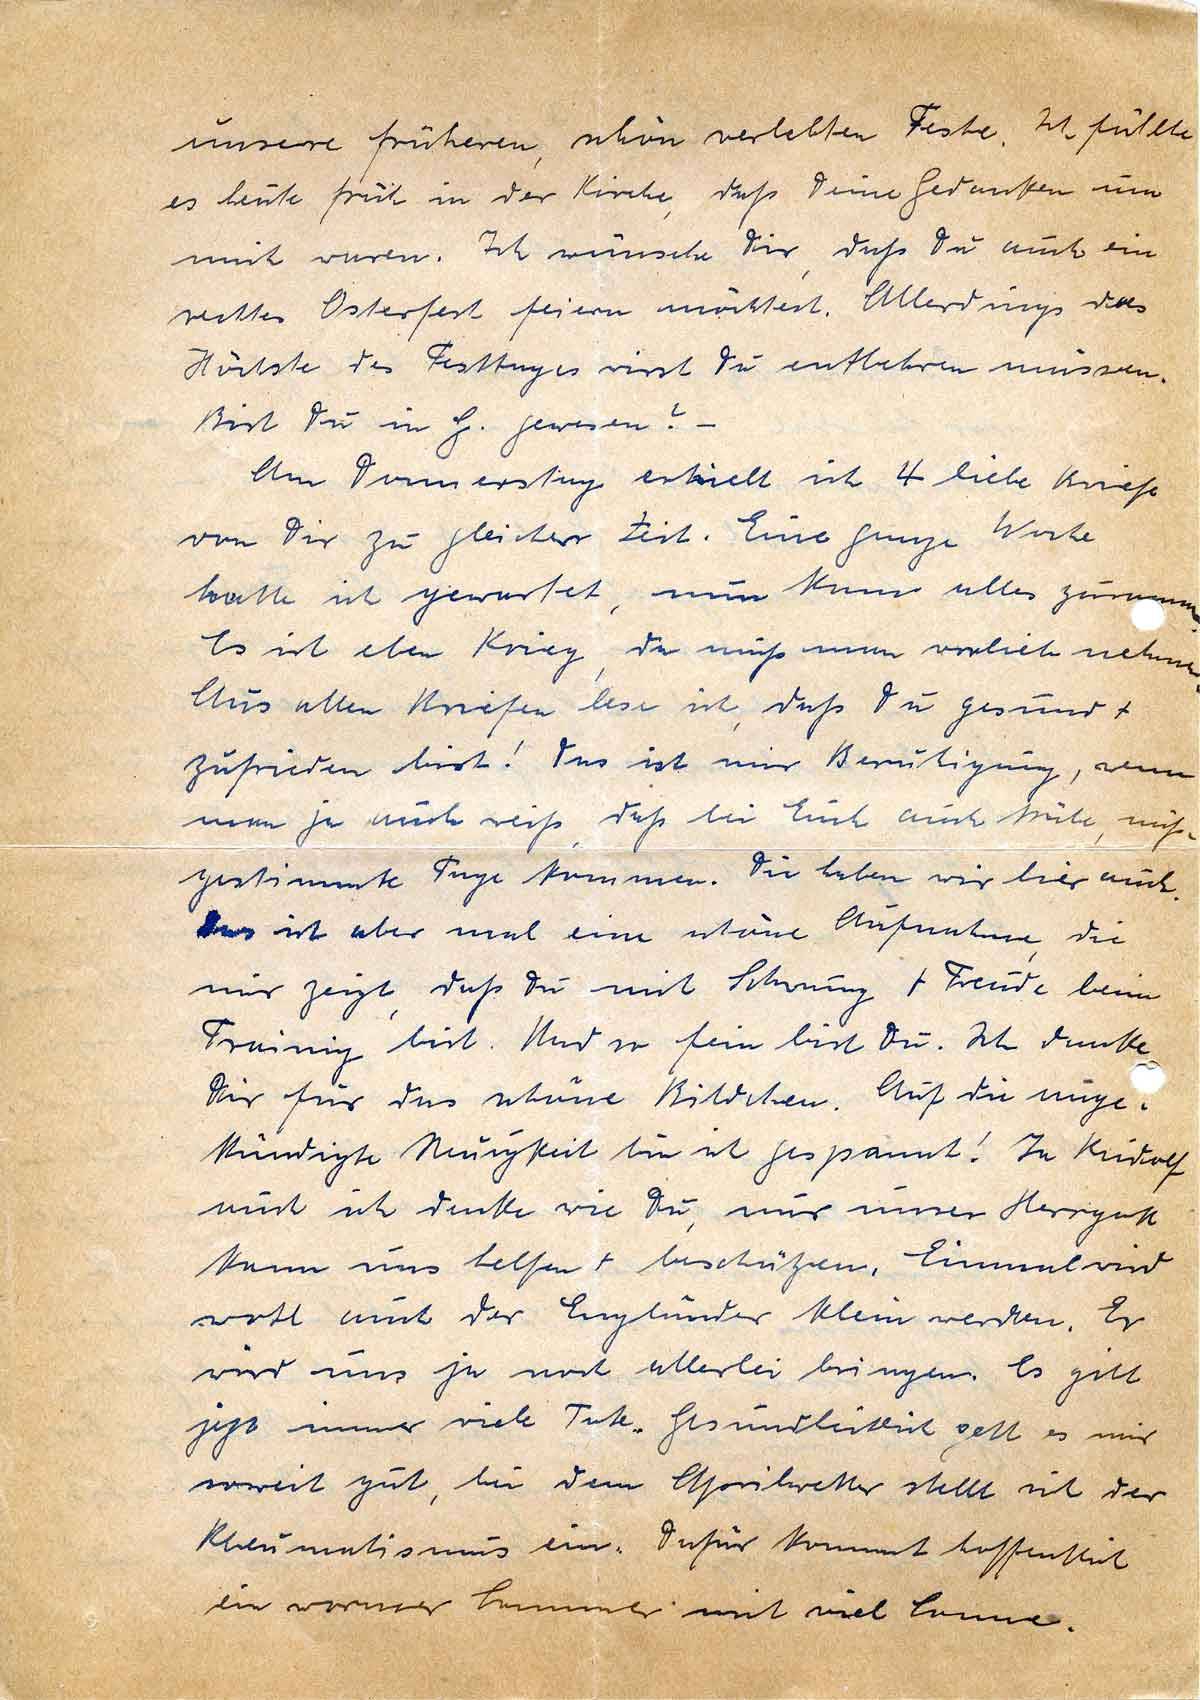 unsere früheren, schön verlebten Feste. Ich fühlte
es heute früh in der Kirche, daß Deine Gedanken um
mich waren. Ich wünsche Dir, daß Du auch ein
rechtes Osterfest feiern möchtest. Allerdings das
Höchste des Festtages wirst Du entbehren müssen.
Bist Du in G. gewesen? –
Am Donnerstag erhielt ich 4 liebe Briefe
von Dir zu gleicher Zeit. Eine ganze Woche
hatte ich gewartet, nun kam alles zusammen.
Es ist eben Krieg, da muß man vorlieb nehmen.
Aus allen Briefen lese ich, daß Du gesund +
zufrieden bist! Das ist mir Beruhigung, wenn
man ja auch weiß, daß bei Euch auch trübe, miß-
gestimmte Tage kommen. Die haben wir hier auch.
Das ist aber mal eine schöne Aufnahme, die
mir zeigt, daß Du mit Schwung + Freude beim
Training bist. Und so fein bist Du. Ich danke
Dir für das schöne Bildchen. Auf die ange-
kündigte Neuigkeit bin ich gespannt! Ja Rudolf
auch ich denke wie Du, nur unser Herrgott
kann uns helfen + beschützen. Einmal wird
wohl auch der Engländer klein werden. Er
wird uns ja noch allerlei bringen. Es gibt
jetzt immer viele Tote. Gesundheitlich geht es mir
soweit gut, bei dem Aprilwetter stellt sich der
Rheumatismus ein. Dafür kommt hoffentlich
ein warmer Sommer mit viel Sonne.